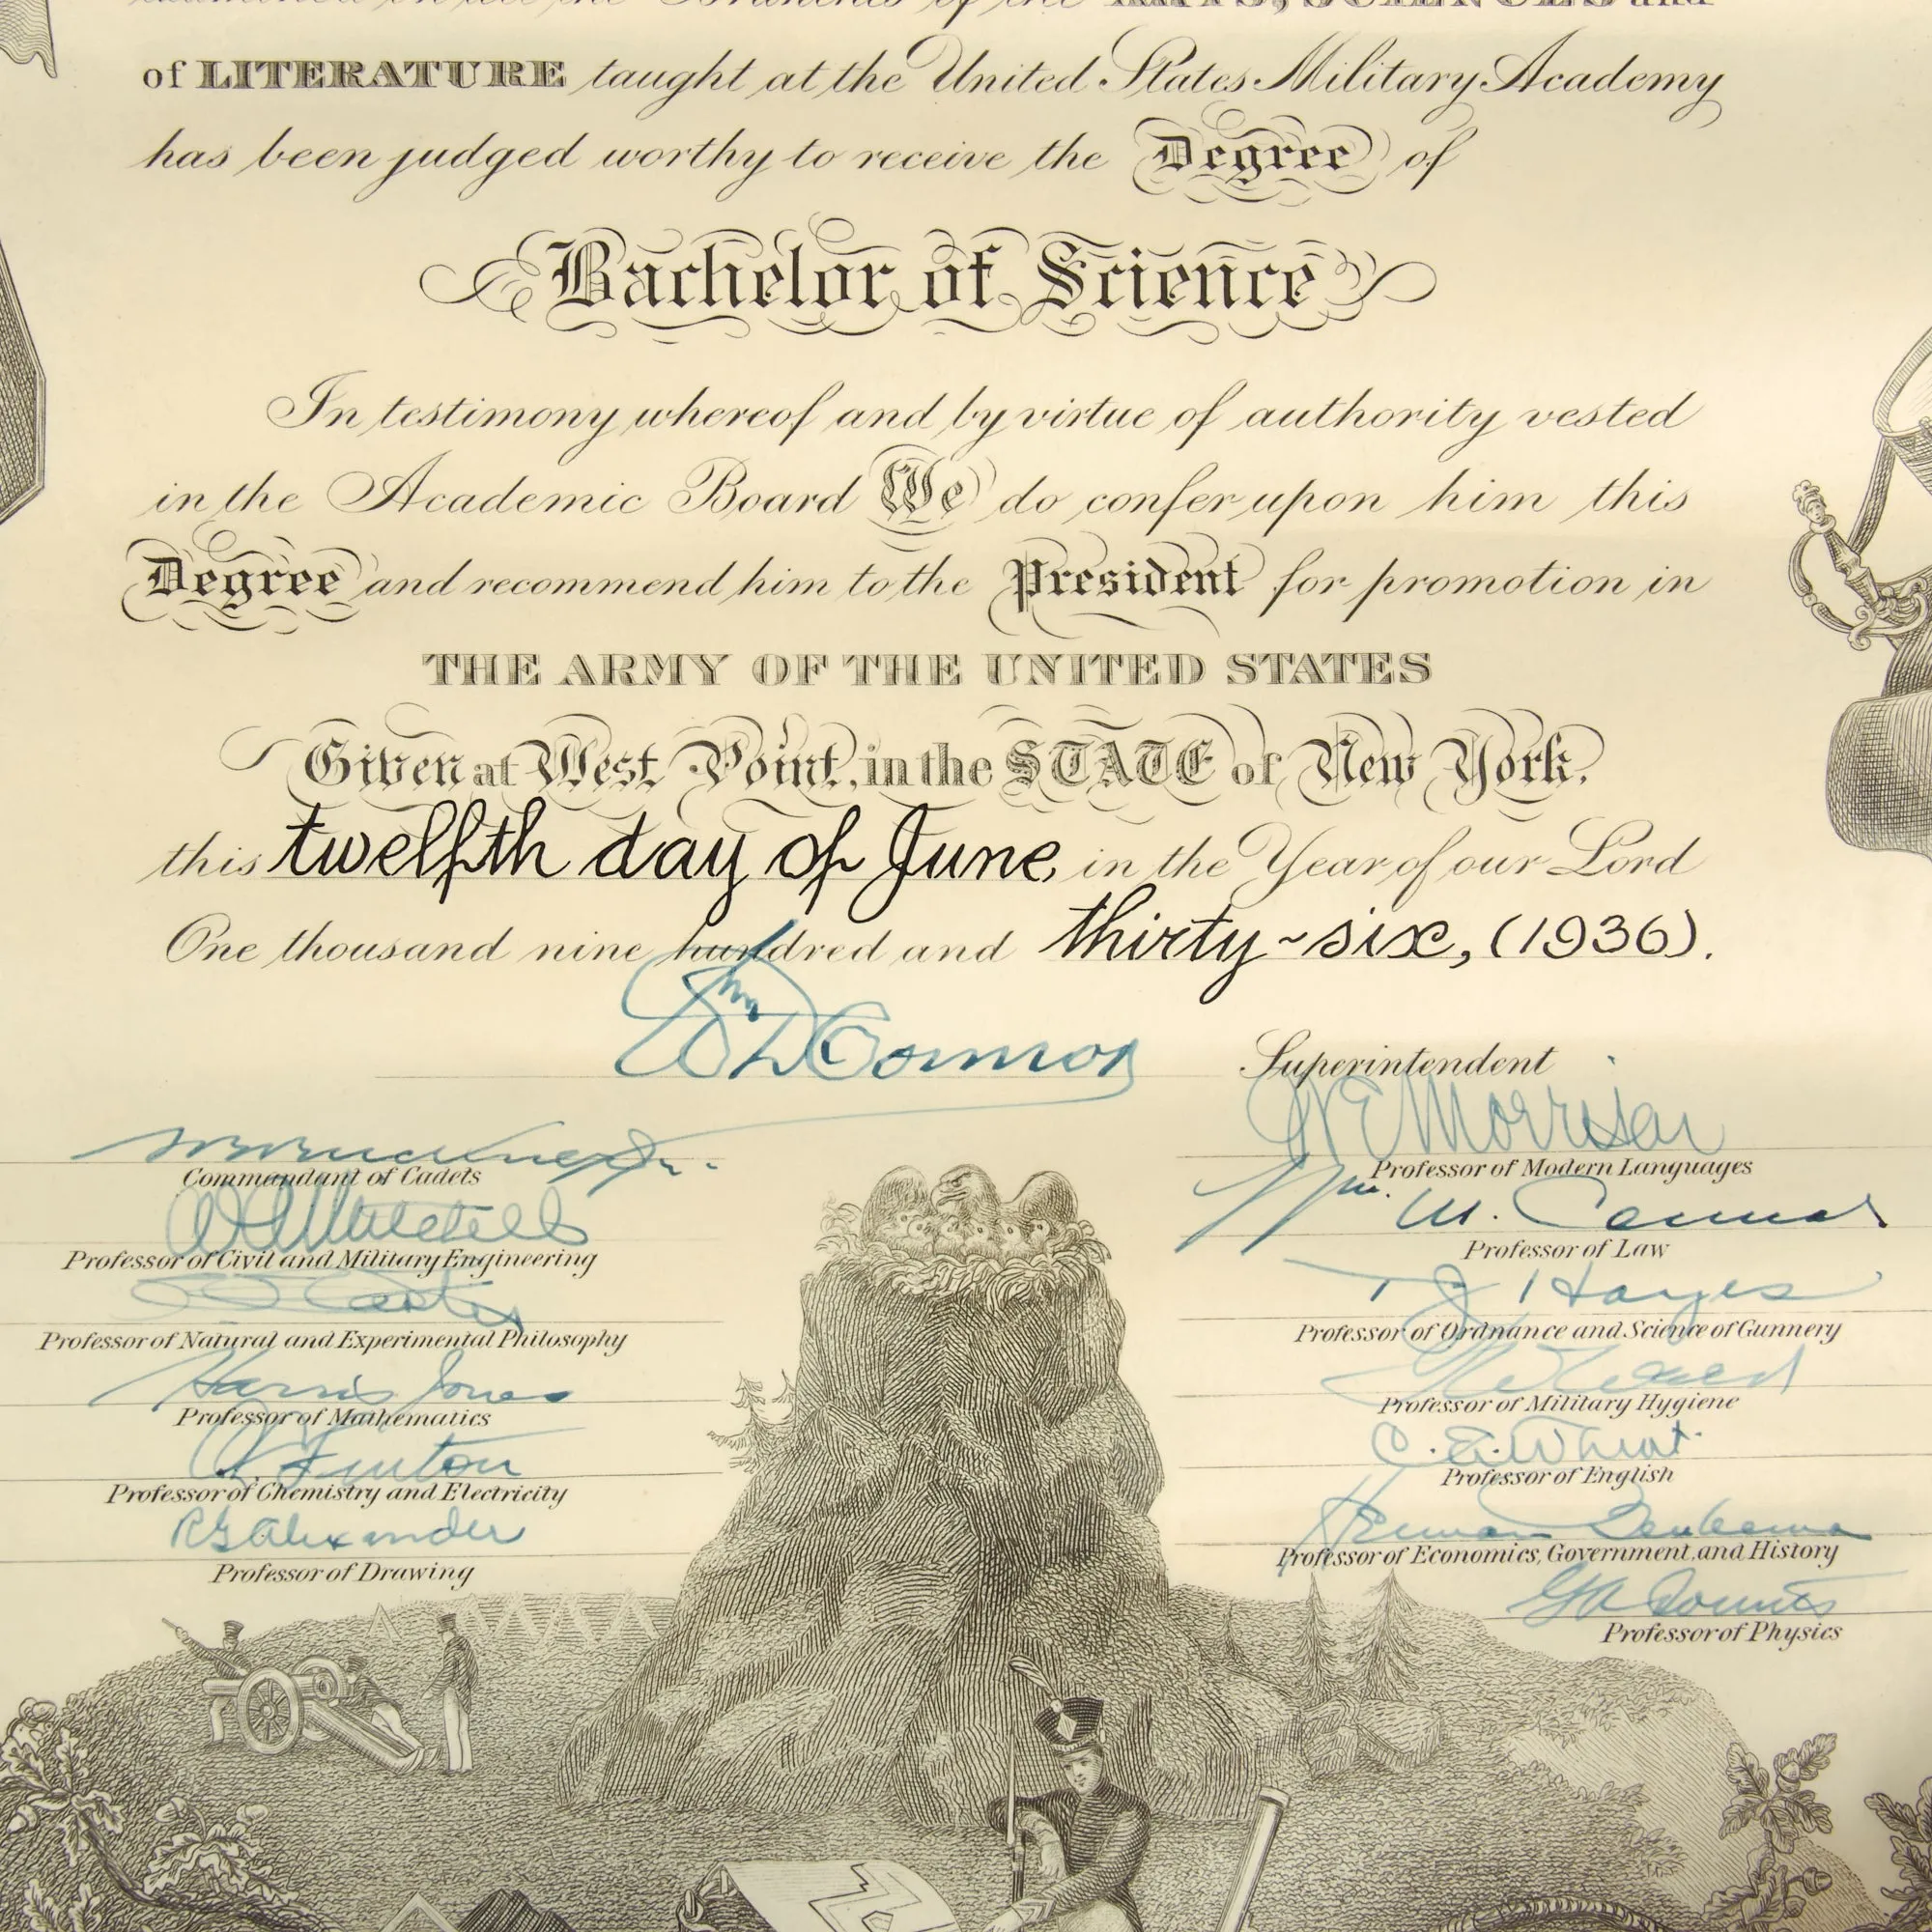 of the ARTS, SCIENCES and
of LITERATURE taught at the United States Military Academy
has been judged worthy to receive the Degree of
Bachelor of Science
In testimony whereof and by virtue of authority vested
in the Academic Board We do confer upon him this
Degree and recommend him to the President for promotion in
THE ARMY OF THE UNITED STATES
Given at West Point, in the STATE of New York,
this twelfth day of June, in the Year of our Lord
One thousand nine hundred and thirty-six, (1936).
Wm D Connor
Superintendent
Commandant of Cadets
WA Mitchell
Professor of Civil and Military Engineering
Professor of Natural and Experimental Philosophy
Harris Jones
Professor of Mathematics
Fenton
Professor of Chemistry and Electricity
RG Alexander
Professor of Drawing
WE Morrison
Professor of Modern Languages
Wm. M. Connor
Professor of Law
T J Hayes
Professor of Ordnance and Science of Gunnery
Professor of Military Hygiene
C. L. Wheat
Professor of English
Herman Beukema
Professor of Economics, Government and History
GA Counts
Professor of Physics